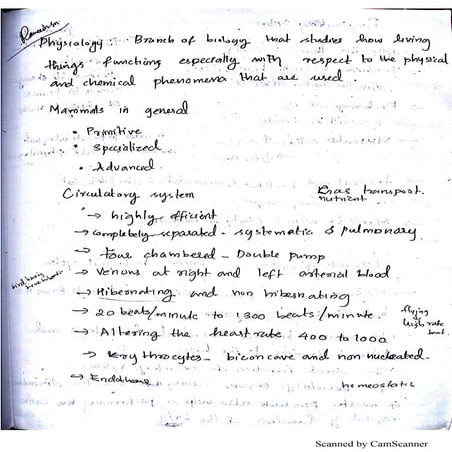 Physiology : Branch of biology that studies how living
things functions especially with respect to the physical
and chemical phenomena that are used.
Mammals in general
• Primitive
• Specialized
• Advanced
Circulatory system
Gas transport.
nutrient
→ highly efficient
→ completely separated - systematic & pulmonary
→ four chambered - Double pump
→ Venous at right and left arterial blood
→ Hibernating and non hibernating
→ 20 beats/minute to 1300 beats/minute.
flying
high rate
beat
→ Altering the heart rate 400 to 1000
→ Erythrocytes - biconcave and non nucleated.
→ Endotherm
homeostatic
Scanned by CamScanner